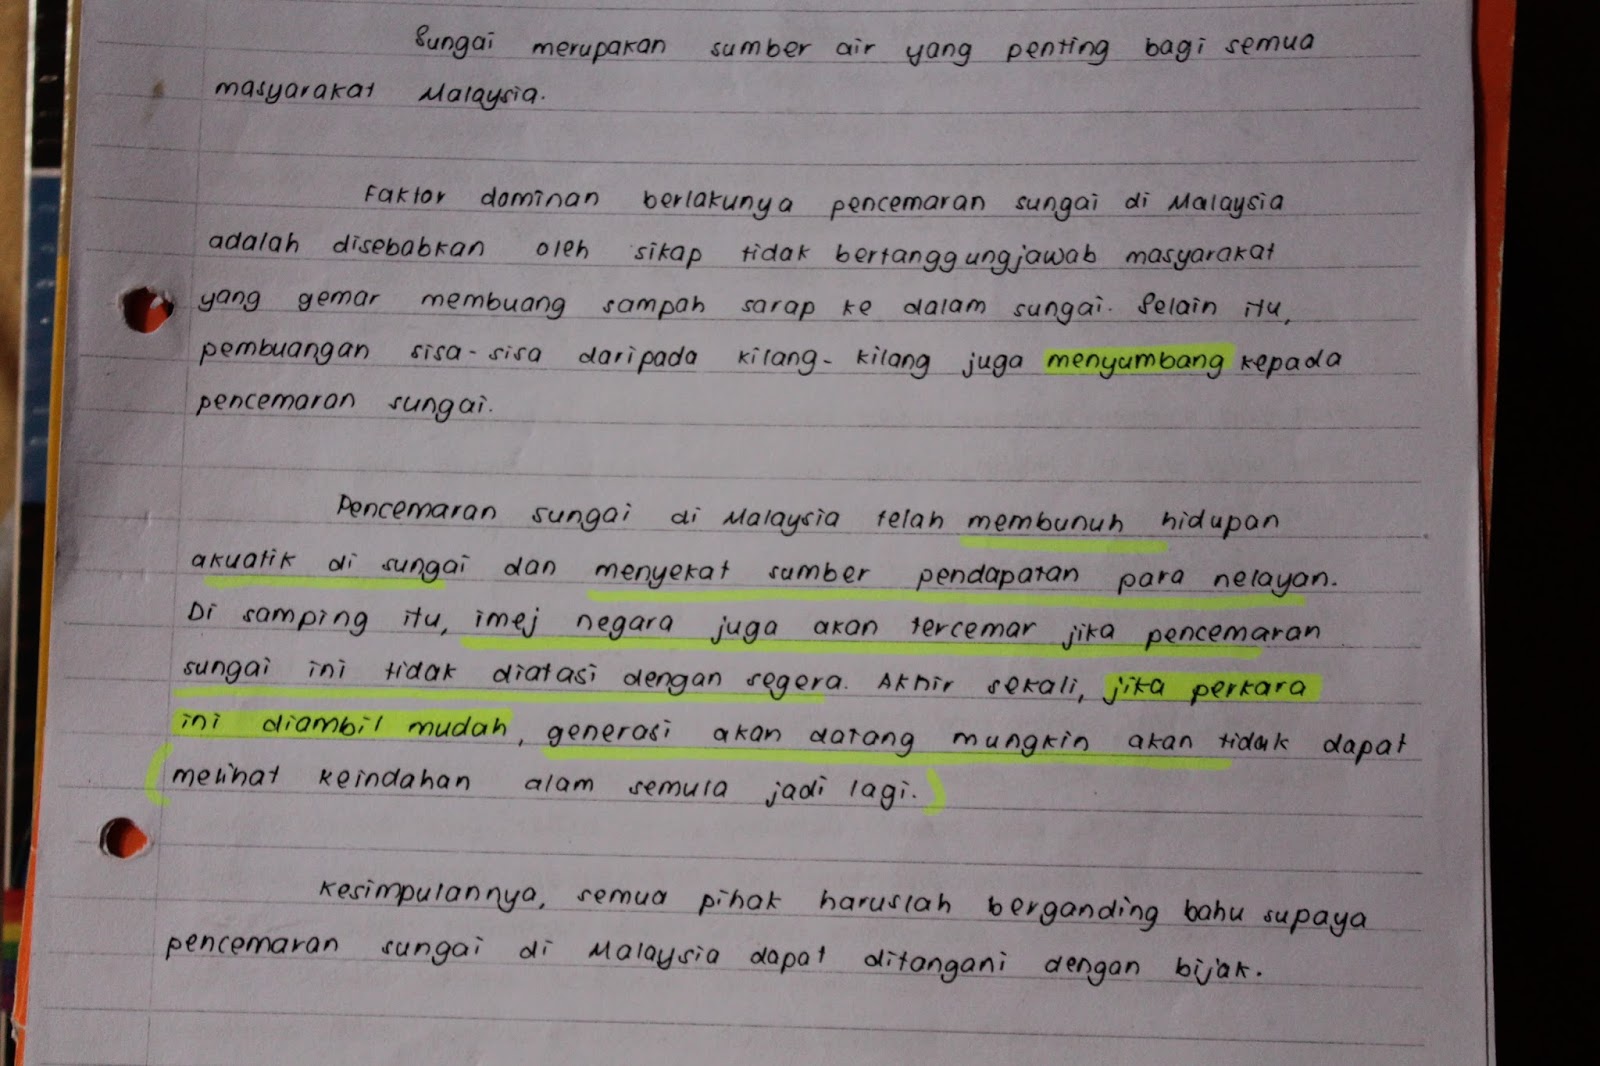 Sungai merupakan sumber air yang penting bagi semua
masyarakat Malaysia.
Faktor dominan berlakunya pencemaran sungai di Malaysia
adalah disebabkan oleh sikap tidak bertanggungjawab masyarakat
yang gemar membuang sampah sarap ke dalam sungai. Selain itu,
pembuangan sisa-sisa daripada kilang-kilang juga menyumbang kepada
pencemaran sungai.
Pencemaran sungai di Malaysia telah membunuh hidupan
akuatik di sungai dan menyekat sumber pendapatan para nelayan.
Di samping itu, imej negara juga akan tercemar jika pencemaran
sungai ini tidak diatasi dengan segera. Akhir sekali, jika perkara
ini diambil mudah, generasi akan datang mungkin akan tidak dapat
(melihat keindahan alam semula jadi lagi.)
Kesimpulannya, semua pihak haruslah berganding bahu supaya
pencemaran sungai di Malaysia dapat ditangani dengan bijak.